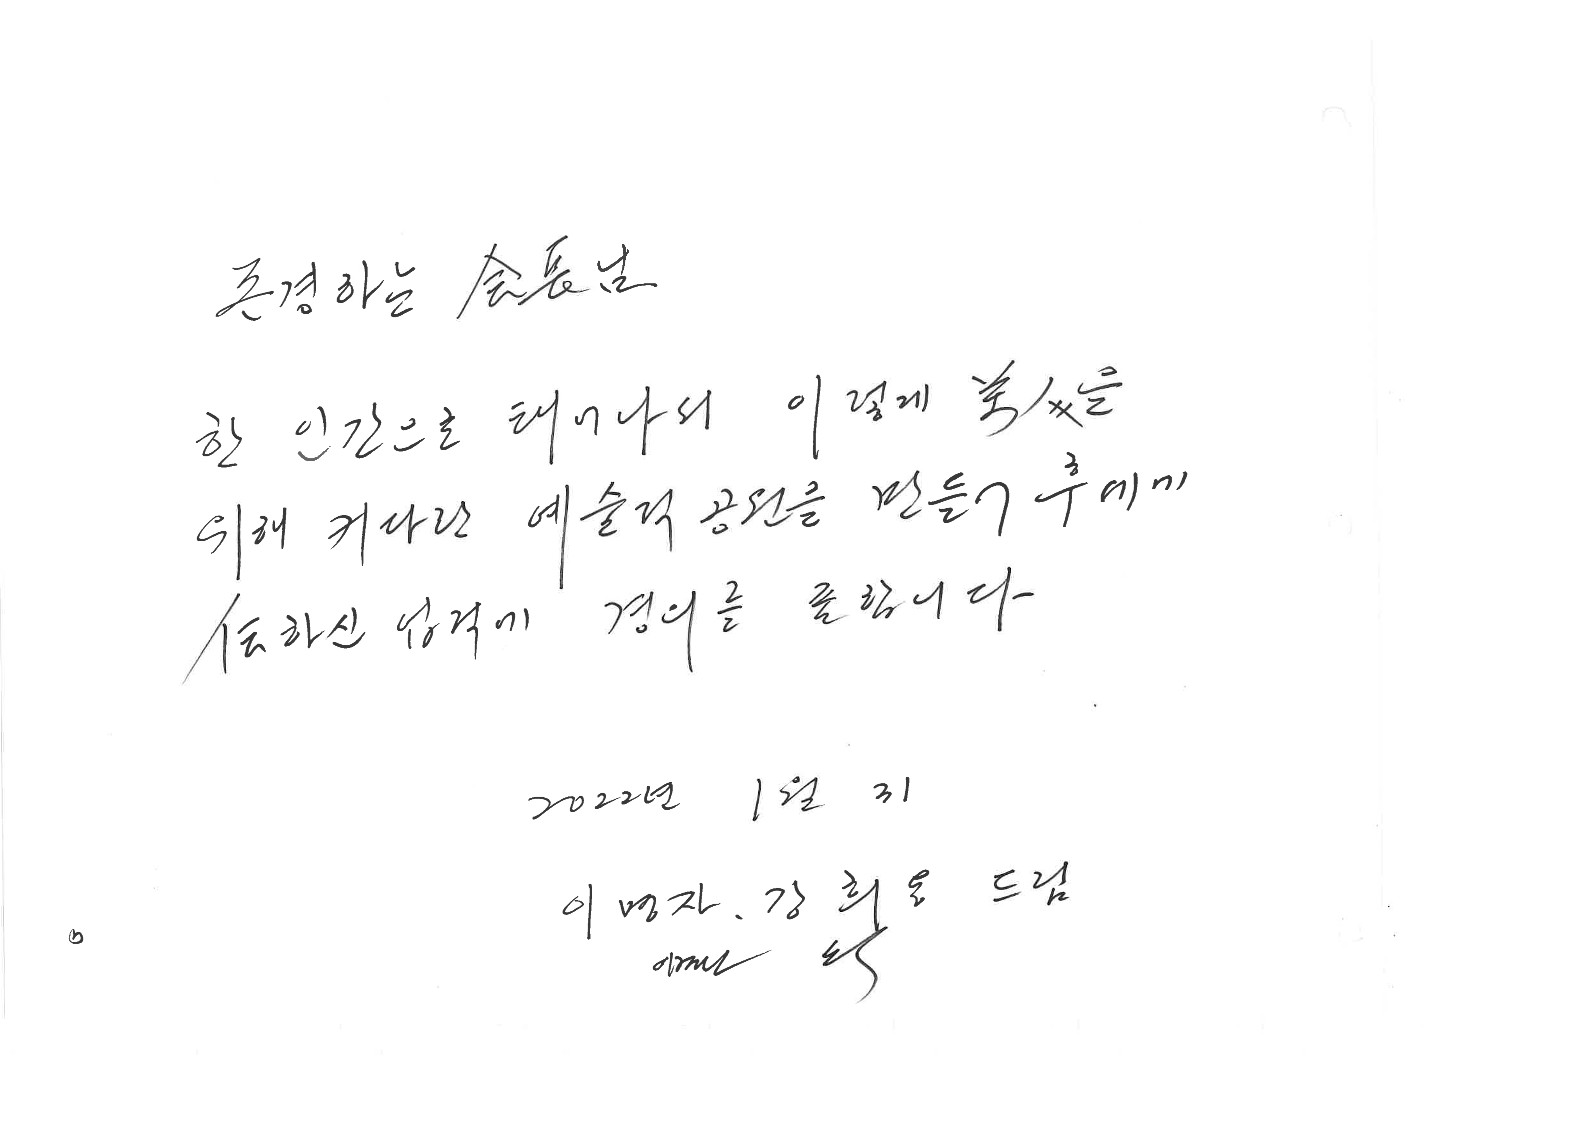 존경하는 会長님
한 인간으로 태어나서 이렇게 萬人을
위해 커다란 예술적 공원을 만들어 후에게
伝하신 업적에 경의를 표합니다
2022년 1월 31
이명자. 강희동 드림